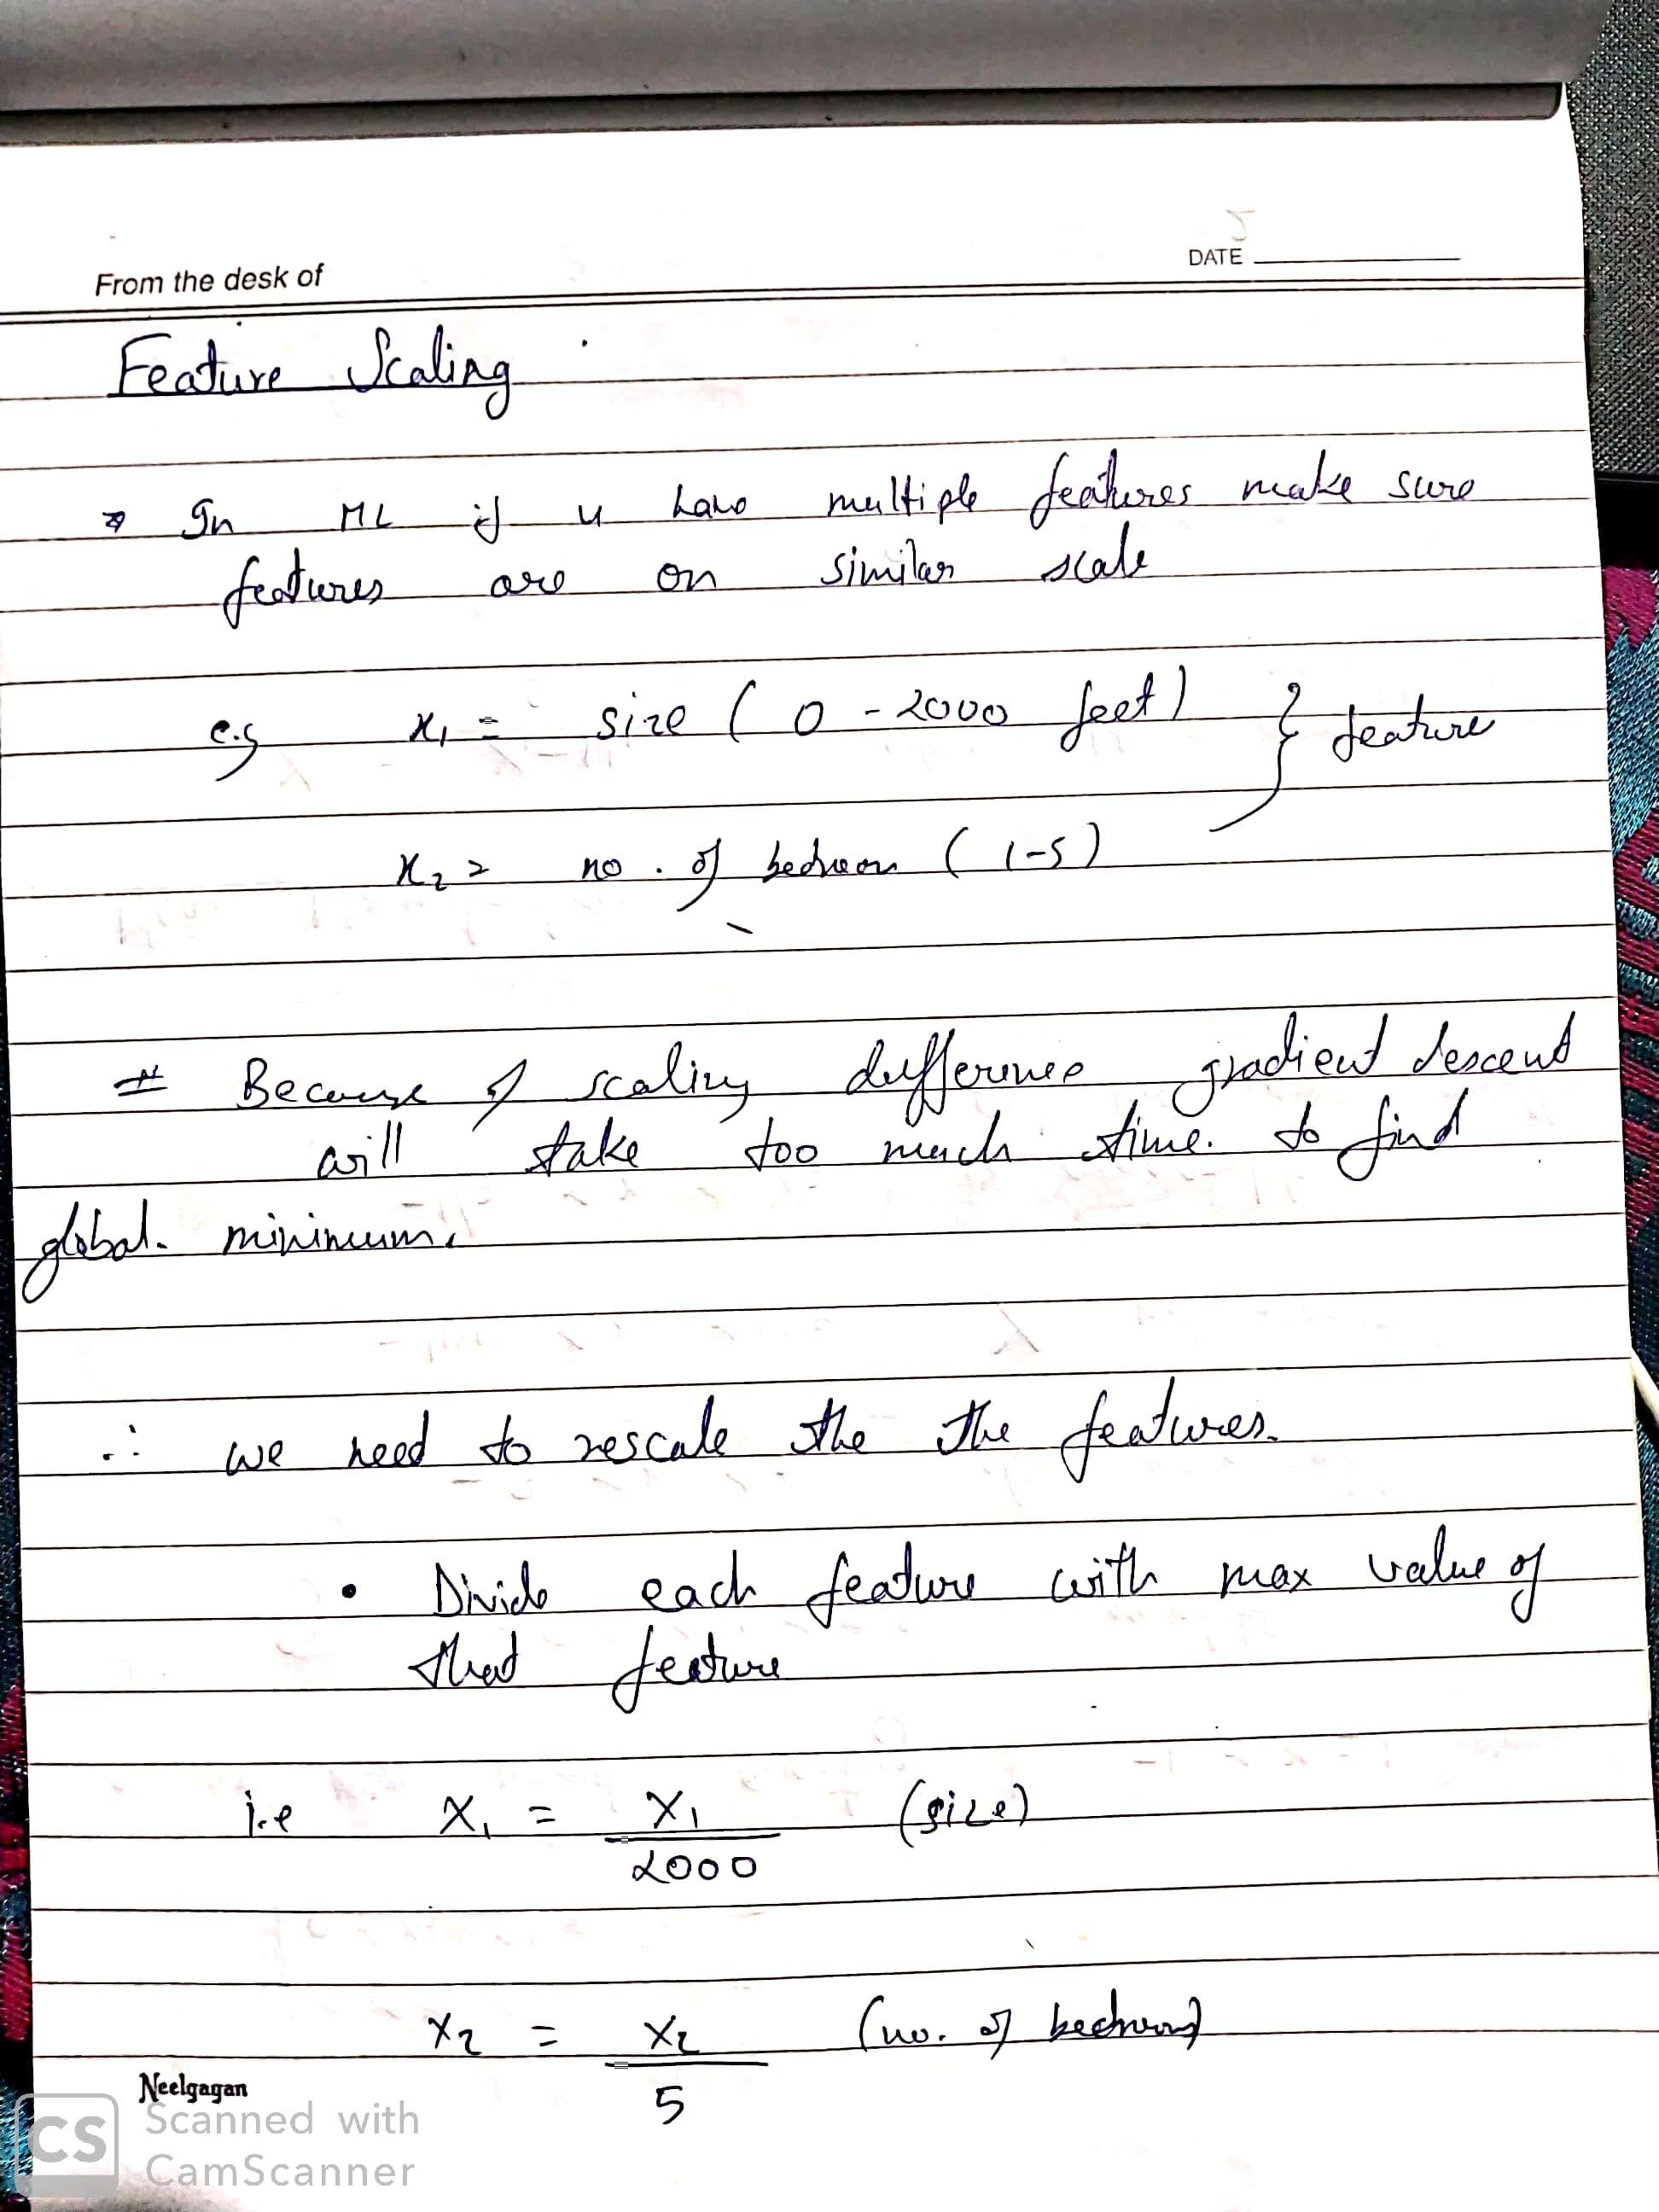 From the desk of
DATE
Feature Scaling
* In ML if u have multiple features make sure
features are on similar scale
e.g x₁ = size ( 0 - 2000 feet ) } feature
x₂ = no. of bedroom ( 1-5 )
# Because of scaling difference gradient descent
will take too much time. to find
global minimum.
∴ we need to rescale the the features.
• Divide each feature with max value of
that feature
i.e X₁ = X₁ (size)
2000
X₂ = X₂ (no. of bedrooms)
5
Neelgagan
CS Scanned with
CamScanner